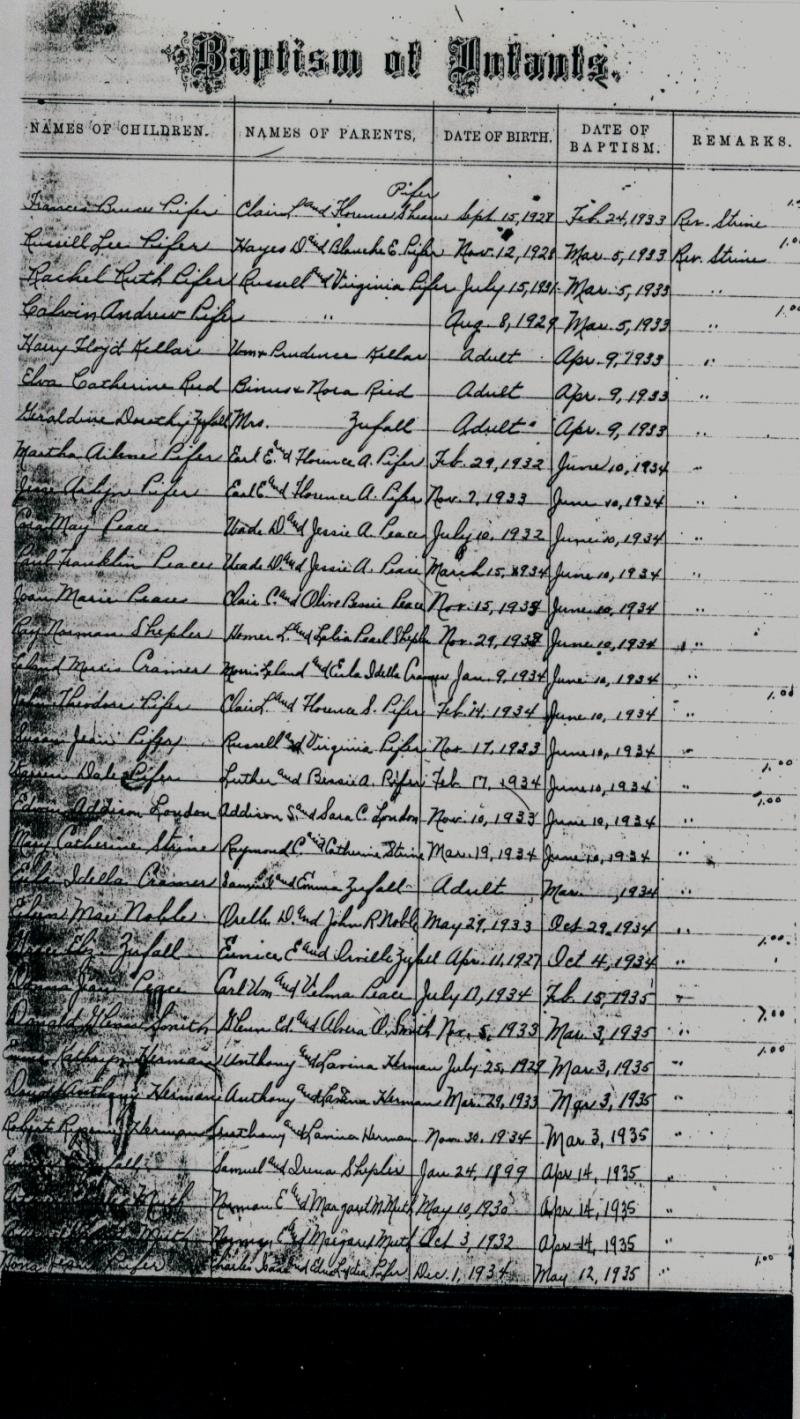 Baptism of Infants.
NAMES OF CHILDREN. NAMES OF PARENTS, DATE OF BIRTH. DATE OF BAPTISM. REMARKS.
Pifer
Francis Bruce Pifer Clair L. and Florence Sept. 15, 1928 Feb. 24, 1933 Rev. Strine
Russell Lee Pifer Hayes D. and Blanche E. Pifer Nov. 12, 1928 Mar. 5, 1933 Rev. Strine 1.00
Rachel Ruth Pifer Russell and Virginia Pifer July 15, 1931 Mar. 5, 1933 "
Calvin Andrew Pifer " Aug. 8, 1929 Mar. 5, 1933 " 1.00
Harry Floyd Kellar Wm & Prudence Kellar Adult Apr. 9, 1933 "
Elva Catherine Reed Adult Apr. 9, 1933 "
Geraldine Dorothy Zufall Mrs. Zufall Adult Apr. 9, 1933 "
Martha Pifer Earl E. and Florence A. Pifer Feb. 29, 1932 June 10, 1934 "
Pifer Earl E. and Florence A. Pifer Nov. 7, 1933 June 10, 1934 "
May Peace Wade D. and Jessie A. Peace July 10, 1932 June 10, 1934 "
Paul Franklin Peace Wade D. and Jessie A. Peace March 15, 1934 June 10, 1934 "
Joan Marie Peace Clair C. and Olive Bessie Peace Nov. 15, June 10, 1934 "
Ray Norman Shepler Homer L. and Pearl Shepler Nov. 29, June 10, 1934 "
Cramer and Eula Idella Cramer Jan. 9, 1934 June 10, 1934 "
John Theodore Pifer Clair L. and Florence S. Pifer Feb. 14, 1934 June 10, 1934 " 1.00
Susan Jean Russell and Virginia Pifer Nov. 17, 1933 June 10, 1934 "
Dale Pifer Luther and Bessie A. Pifer Feb 17, 1934 June 10, 1934 " 1.00
Edwin Addison London Addison S. and Sara C. London Nov. 10, 1933 June 10, 1934 " 1.00
Mary Catherine Strine Raymond C. and Catherine Strine Mar. 19, 1934 June 10, 1934 "
Eula Idella Cramer Samuel and Emma Zufall Adult Mar. , 1934 "
Mae Noble D. and John R Noble May 29, 1933 Oct 29, 1934 "
Zufall Eunice E and Orville Zufall Apr. 11, 1927 Oct 4, 1934 " 1.00
Donna Jean Peace Carl Wm and Velma Peace July 17, 1934 Feb. 15, 1935 "
Donald Glenn Smith Glenn Ed and Smith Nov. 5, 1933 Mar. 3, 1935 "
Kathryn Herman Anthony and Lavina Herman July 25, Mar. 3, 1935 " 1.00
Anthony Herman Anthony and Lavina Herman Mar. 29, 1933 Mar. 3, 1935 "
Herman Anthony and Lavina Herman Nov. 30, 1934 Mar 3, 1935 "
Samuel and Irena Shepler Jan 24, 1899 Apr 14, 1935 "
Muth Norman E and Margaret M Muth May 10, 1930 Apr 14, 1935 "
Muth Norman E and Margaret Muth Oct 3, 1932 Apr 14, 1935 "
Pifer Charles and Lydia Pifer Dec. 1, 1934 May 12, 1935 " 1.00